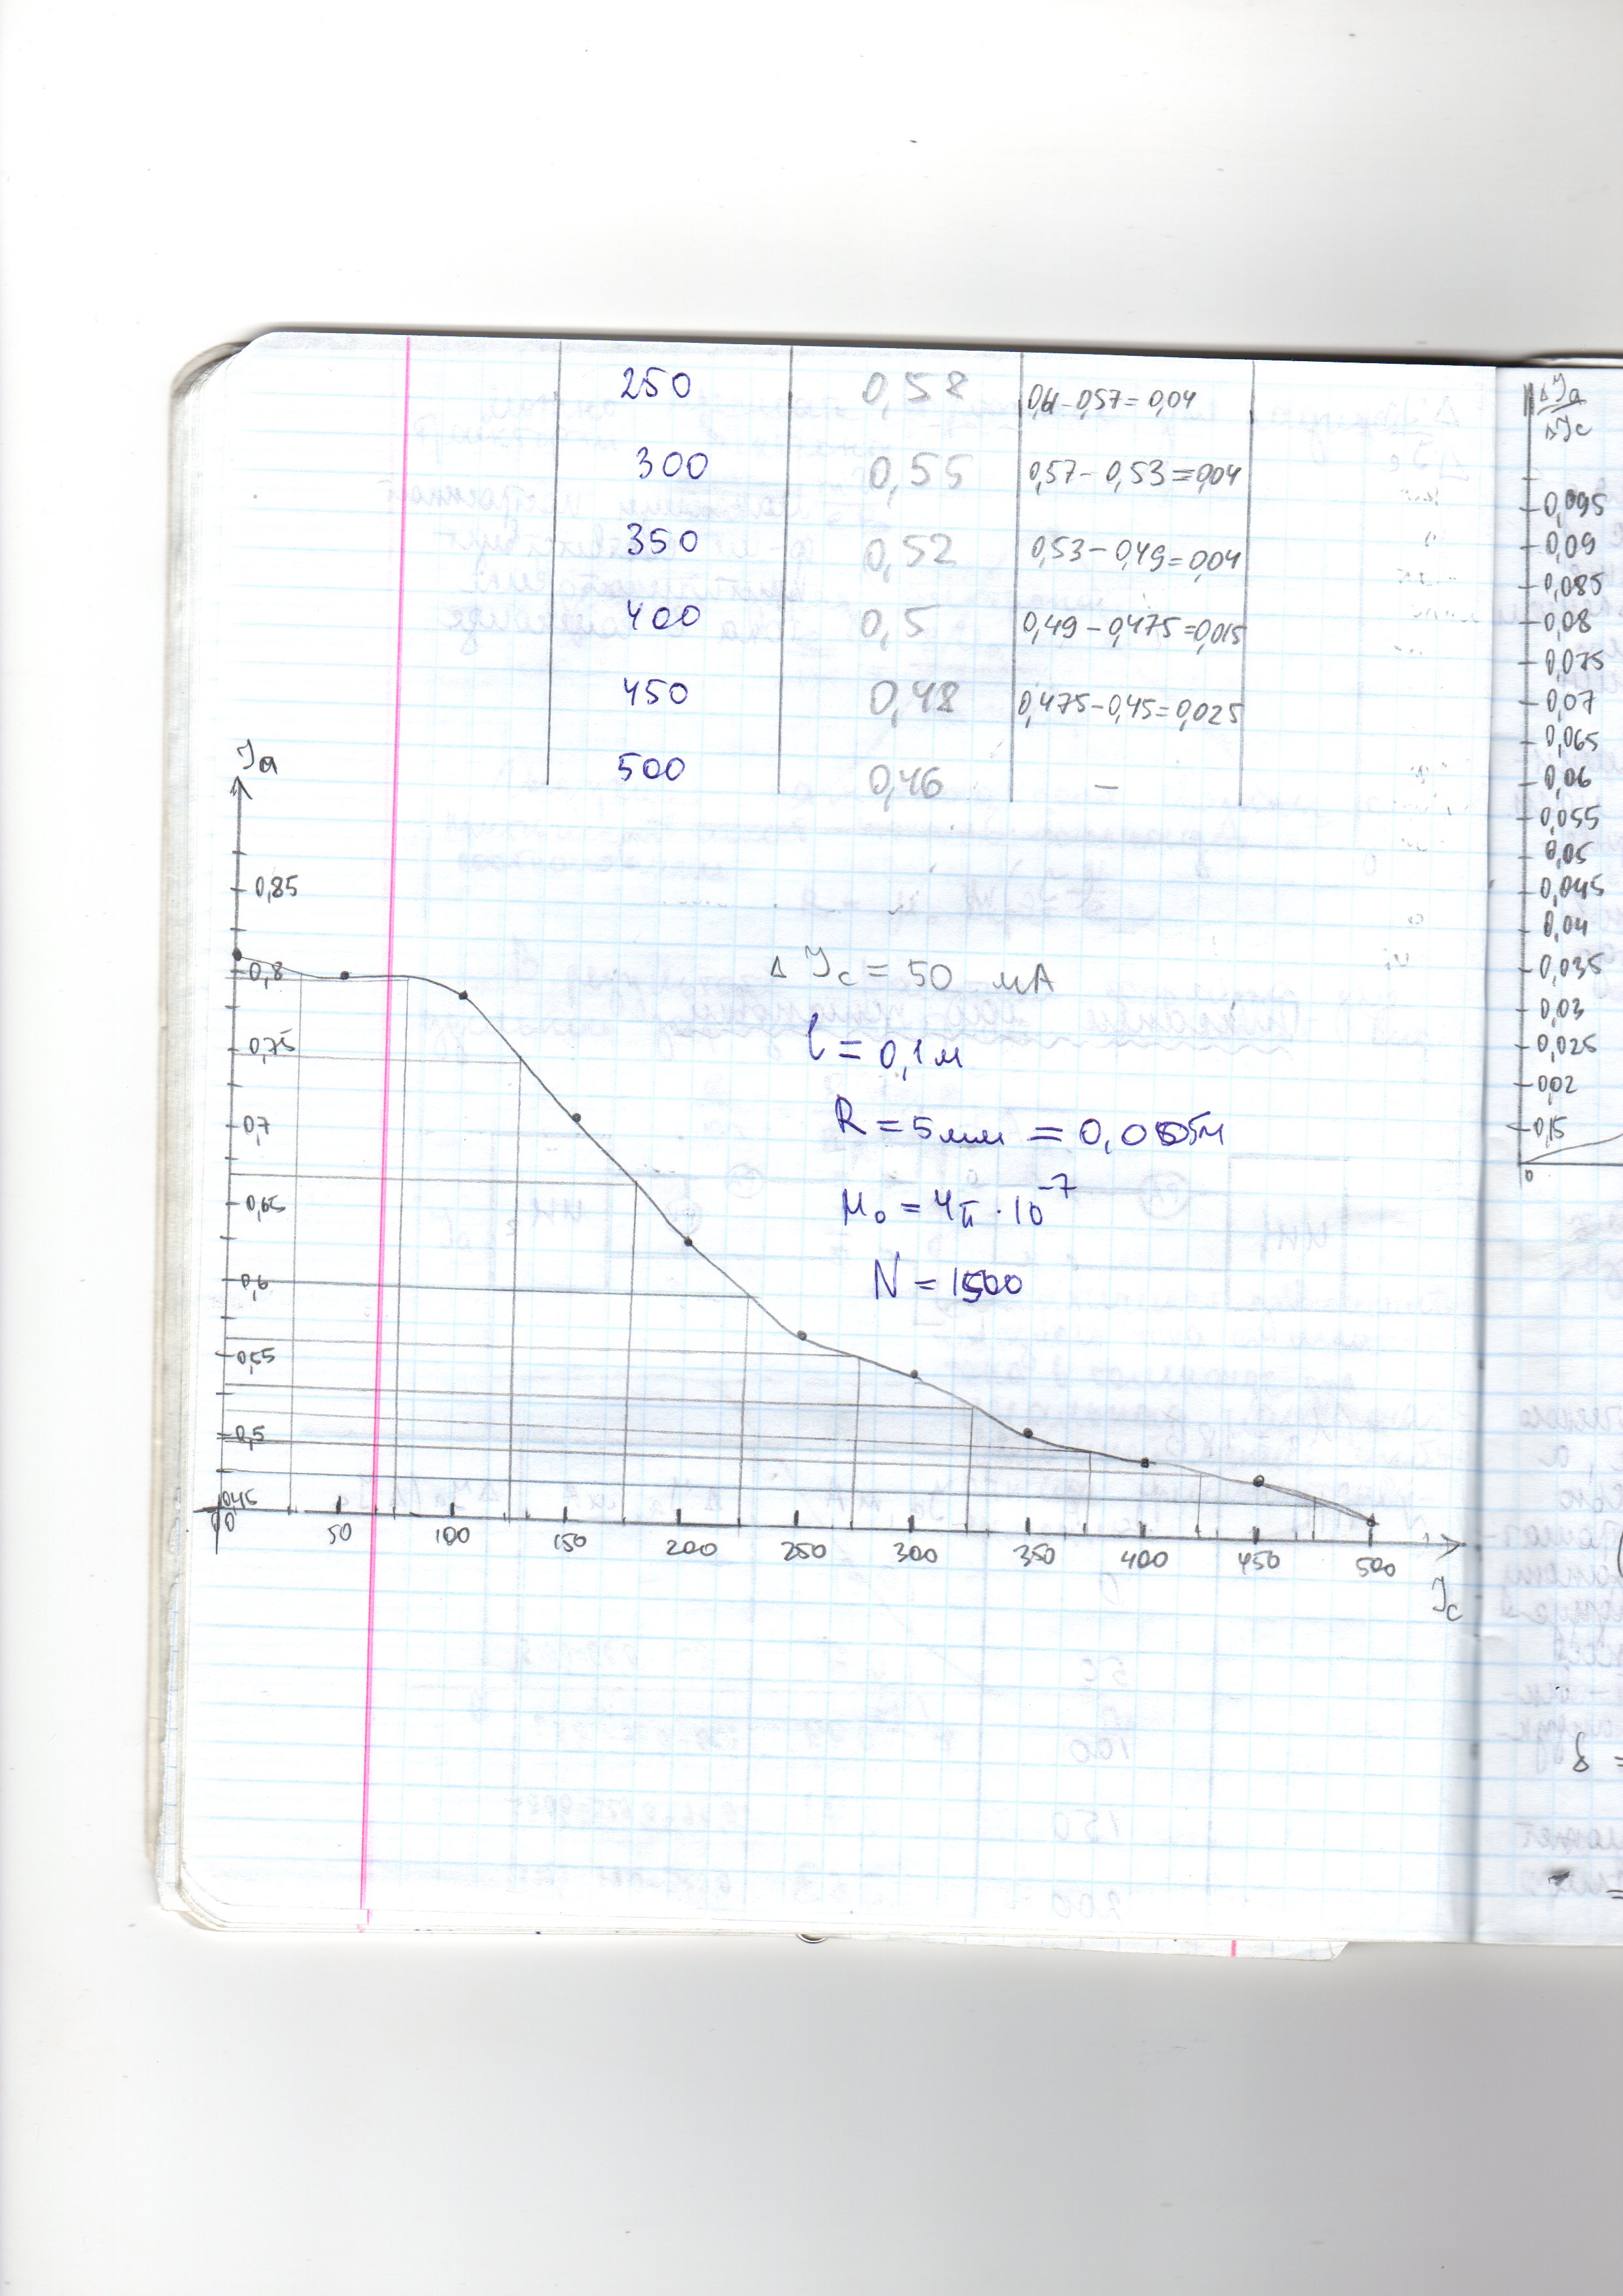 250 0,58 0,61-0,57=0,04
300 0,55 0,57-0,53=0,04
350 0,52 0,53-0,49=0,04
400 0,5 0,49-0,475=0,015
450 0,48 0,475-0,45=0,025
500 0,46 –
Ja
0,85
0,8
0,75
0,7
0,65
0,6
0,55
0,5
0,45
0 50 100 150 200 250 300 350 400 450 500
Jc
Δ Jc = 50 мА
l = 0,1 м
R = 5 мм = 0,005м
μ₀ = 4π · 10⁻⁷
N = 1500
ΔJa
ΔJc
0,095
0,09
0,085
0,08
0,075
0,07
0,065
0,06
0,055
0,05
0,045
0,04
0,035
0,03
0,025
0,02
0,15
0